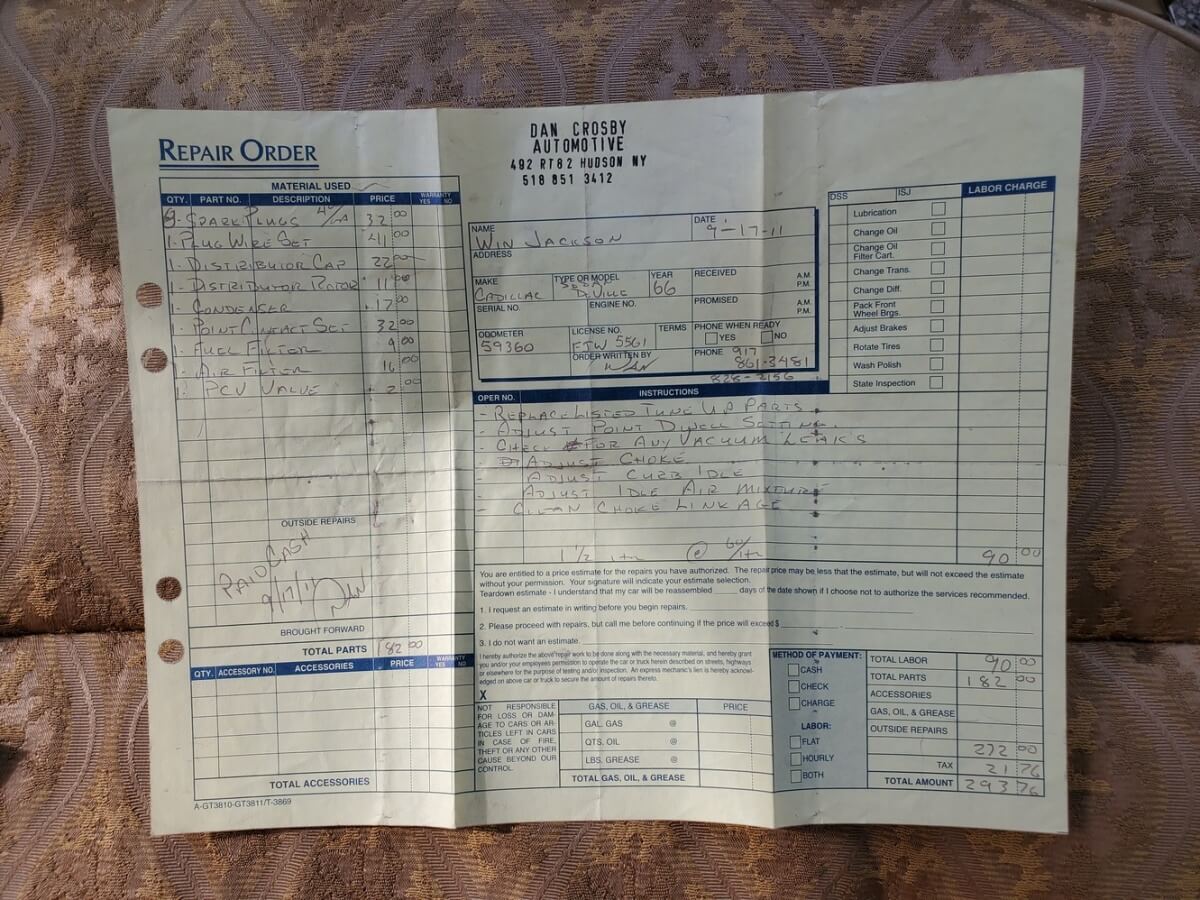 REPAIR ORDER
DAN CROSBY
AUTOMOTIVE
492 RT82 HUDSON NY
518 851 3412
MATERIAL USED
QTY. PART NO. DESCRIPTION PRICE WARRANTY YES NO
SPARK PLUGS 32 00
1- PLUG WIRE SET 41 00
1- DISTRIBUTOR CAP 22 00
1- DISTRIBUTOR ROTOR 11 00
1- CONDENSER 17 00
1- POINT CONTACT SET 32 00
1- FUEL FILTER 9 00
1- AIR FILTER 16 00
1- PCV VALVE 2 00
OUTSIDE REPAIRS
PAID CASH
BROUGHT FORWARD
TOTAL PARTS 182 00
QTY. ACCESSORY NO. ACCESSORIES PRICE WARRANTY YES NO
TOTAL ACCESSORIES
A-GT3810-GT3811/T-3869
NAME WIN JACKSON
DATE 9-17-11
ADDRESS
MAKE CADILLAC
TYPE OR MODEL DEVILLE
YEAR 66
RECEIVED A.M. P.M.
SERIAL NO.
ENGINE NO.
PROMISED A.M. P.M.
ODOMETER 59360
LICENSE NO. 5561
TERMS
PHONE WHEN READY YES NO
ORDER WRITTEN BY DAN
PHONE 917
861-3481
828-3156
OPER NO. INSTRUCTIONS
- REPLACE LISTED TUNE UP PARTS
- ADJUST POINT DWELL SETTING.
- CHECK FOR ANY VACUUM LEAKS
- ADJUST CHOKE
- ADJUST CURB IDLE
- ADJUST IDLE AIR MIXTURE
- CLEAN CHOKE LINKAGE
1 1/2 HR @ 60/HR 90 00
DSS ISJ LABOR CHARGE
Lubrication
Change Oil
Change Oil
Filter Cart.
Change Trans.
Change Diff.
Pack Front
Wheel Brgs.
Adjust Brakes
Rotate Tires
Wash Polish
State Inspection
You are entitled to a price estimate for the repairs you have authorized. The repair price may be less that the estimate, but will not exceed the estimate
without your permission. Your signature will indicate your estimate selection.
Teardown estimate - I understand that my car will be reassembled ____ days of the date shown if I choose not to authorize the services recommended.
1. I request an estimate in writing before you begin repairs.
2. Please proceed with repairs, but call me before continuing if the price will exceed $
3. I do not want an estimate.
I hereby authorize the above repair work to be done along with the necessary material, and hereby grant
you and/or your employees permission to operate the car or truck herein described on streets, highways
or elsewhere for the purpose of testing and/or inspection. An express mechanic's lien is hereby acknowl-
edged on above car or truck to secure the amount of repairs thereto.
X
NOT RESPONSIBLE
FOR LOSS OR DAM-
AGE TO CARS OR AR-
TICLES LEFT IN CARS
IN CASE OF FIRE,
THEFT OR ANY OTHER
CAUSE BEYOND OUR
CONTROL.
GAS, OIL, & GREASE PRICE
GAL. GAS @
QTS. OIL @
LBS. GREASE @
TOTAL GAS, OIL, & GREASE
METHOD OF PAYMENT:
CASH
CHECK
CHARGE
LABOR:
FLAT
HOURLY
BOTH
TOTAL LABOR 90 00
TOTAL PARTS 182 00
ACCESSORIES
GAS, OIL, & GREASE
OUTSIDE REPAIRS
272 00
TAX 21 76
TOTAL AMOUNT 293 76